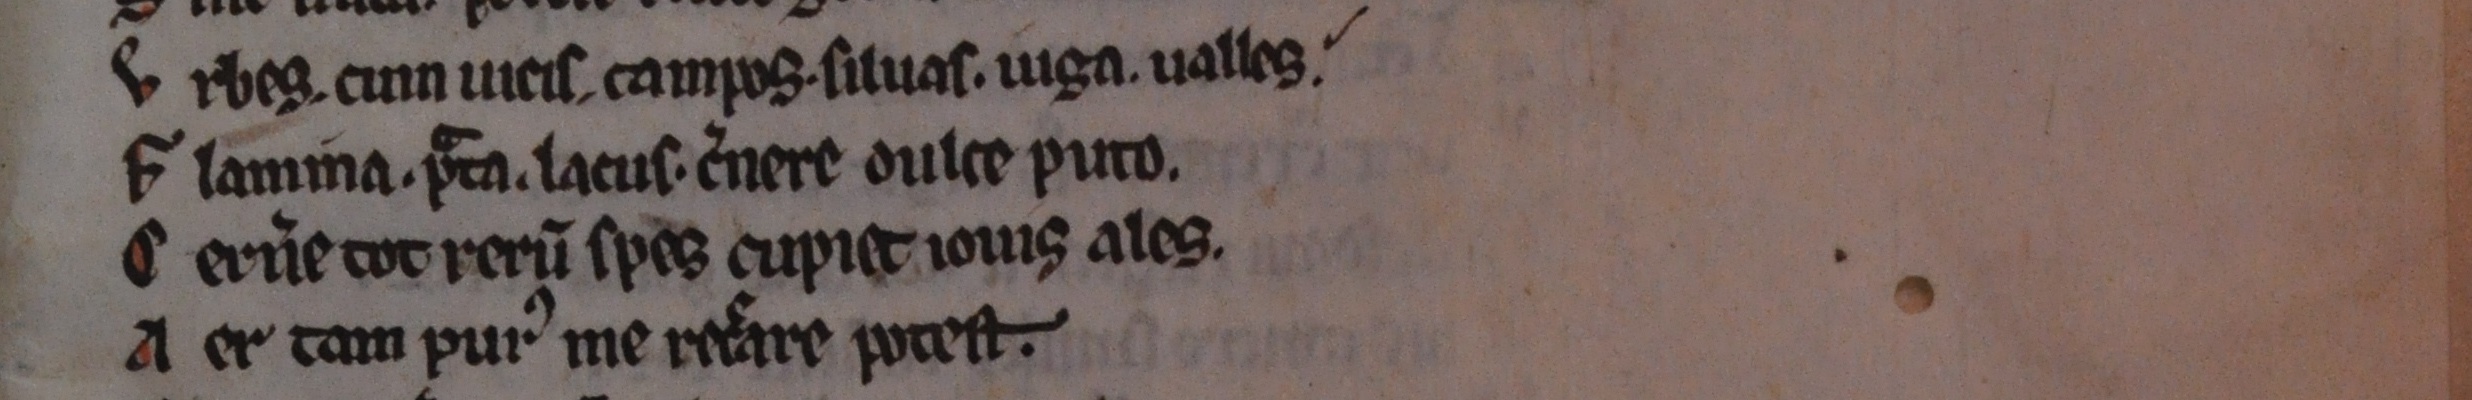 V rbes. cum uicis, campos. siluas. iuga. ualles.
F lamina. p̃ta. lacus. c̃nere dulce puto.
C ern̾e tot rerũ spes cupiet iouis ales.
A er tam pur᾽ me ret̃are potest.